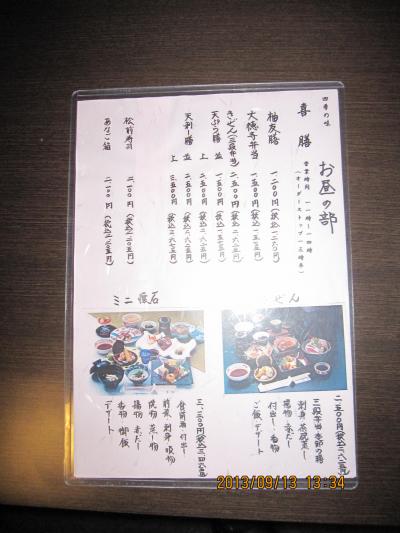 四季の味
喜膳 お昼の部
営業時間 一一時〜一四時
(オーダーストップ一三時半)
柚友膳 一、二〇〇円(税込一、二六〇円)
大徳寺弁当 一、五〇〇円(税込一、五七五円)
きぜん(三段弁当) 二、五〇〇円(税込二、六二五円)
天ぷら膳 並 一、五〇〇円(税込一、五七五円)
上 二、五〇〇円(税込二、六二五円)
天刺し膳 並 二、五〇〇円(税込二、六二五円)
上 三、五〇〇円(税込三、六七五円)
松前寿司 二、一〇〇円(税込二、二〇五円)
あなご箱 二、一〇〇円(税込二、二〇五円)
ぜん
二、五〇〇円(税込二、六二五円)
三段弁当 季節の膳
刺身・茶碗蒸し
揚物・赤だし
付出し・香物
ご飯・デザート
ミニ懐石
三、三〇〇円(税込三、四六五円)
食前酒・付出し
前菜・刺身・吸物
焼物・蒸し物
揚物・赤だし
香物・御飯
デザート
2013/09/13 13:34